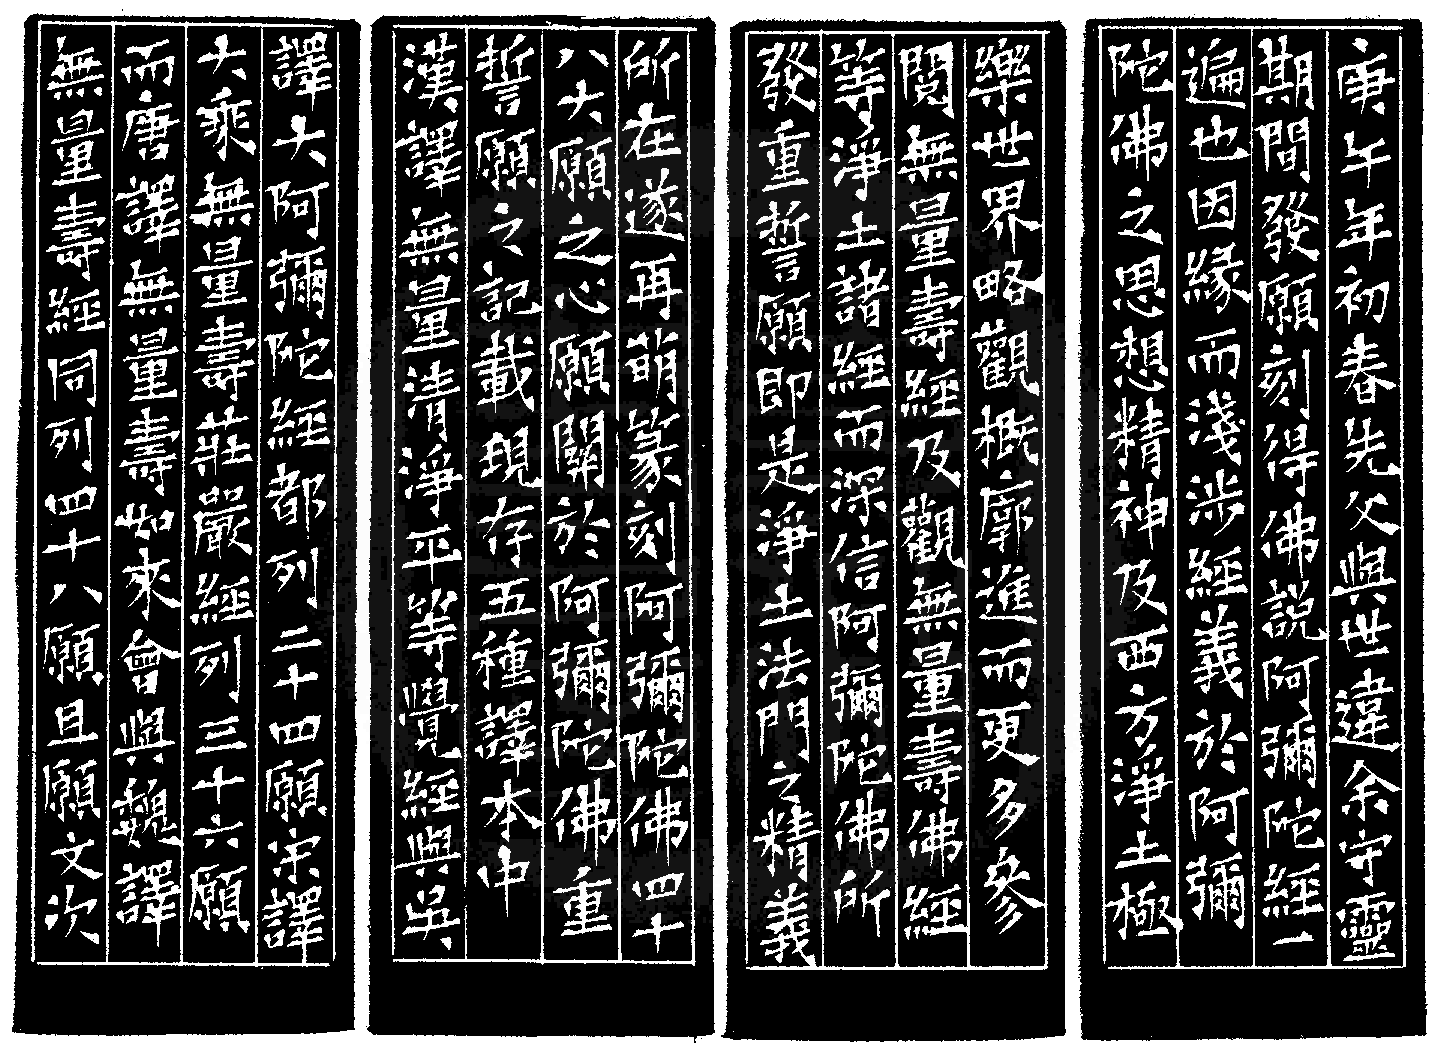 庚午年初春先父與世違余守靈
期間發願刻得佛說阿彌陀經一
遍也因緣而淺涉經義於阿彌
陀佛之思想精神及西方淨土極
樂世界略觀概廓進而更多參
閱無量壽經及觀無量壽佛經
等淨土諸經而深信阿彌陀佛所
發重誓願即是淨土法門之精義
所在遂再萌篆刻阿彌陀佛四十
八大願之心願關於阿彌陀佛重
誓願之記載現存五種譯本中
漢譯無量清淨平等覺經與吳
譯大阿彌陀經都列二十四願宋譯
大乘無量壽莊嚴經列三十六願
而唐譯無量壽如來會與魏譯
無量壽經同列四十八願且願文次